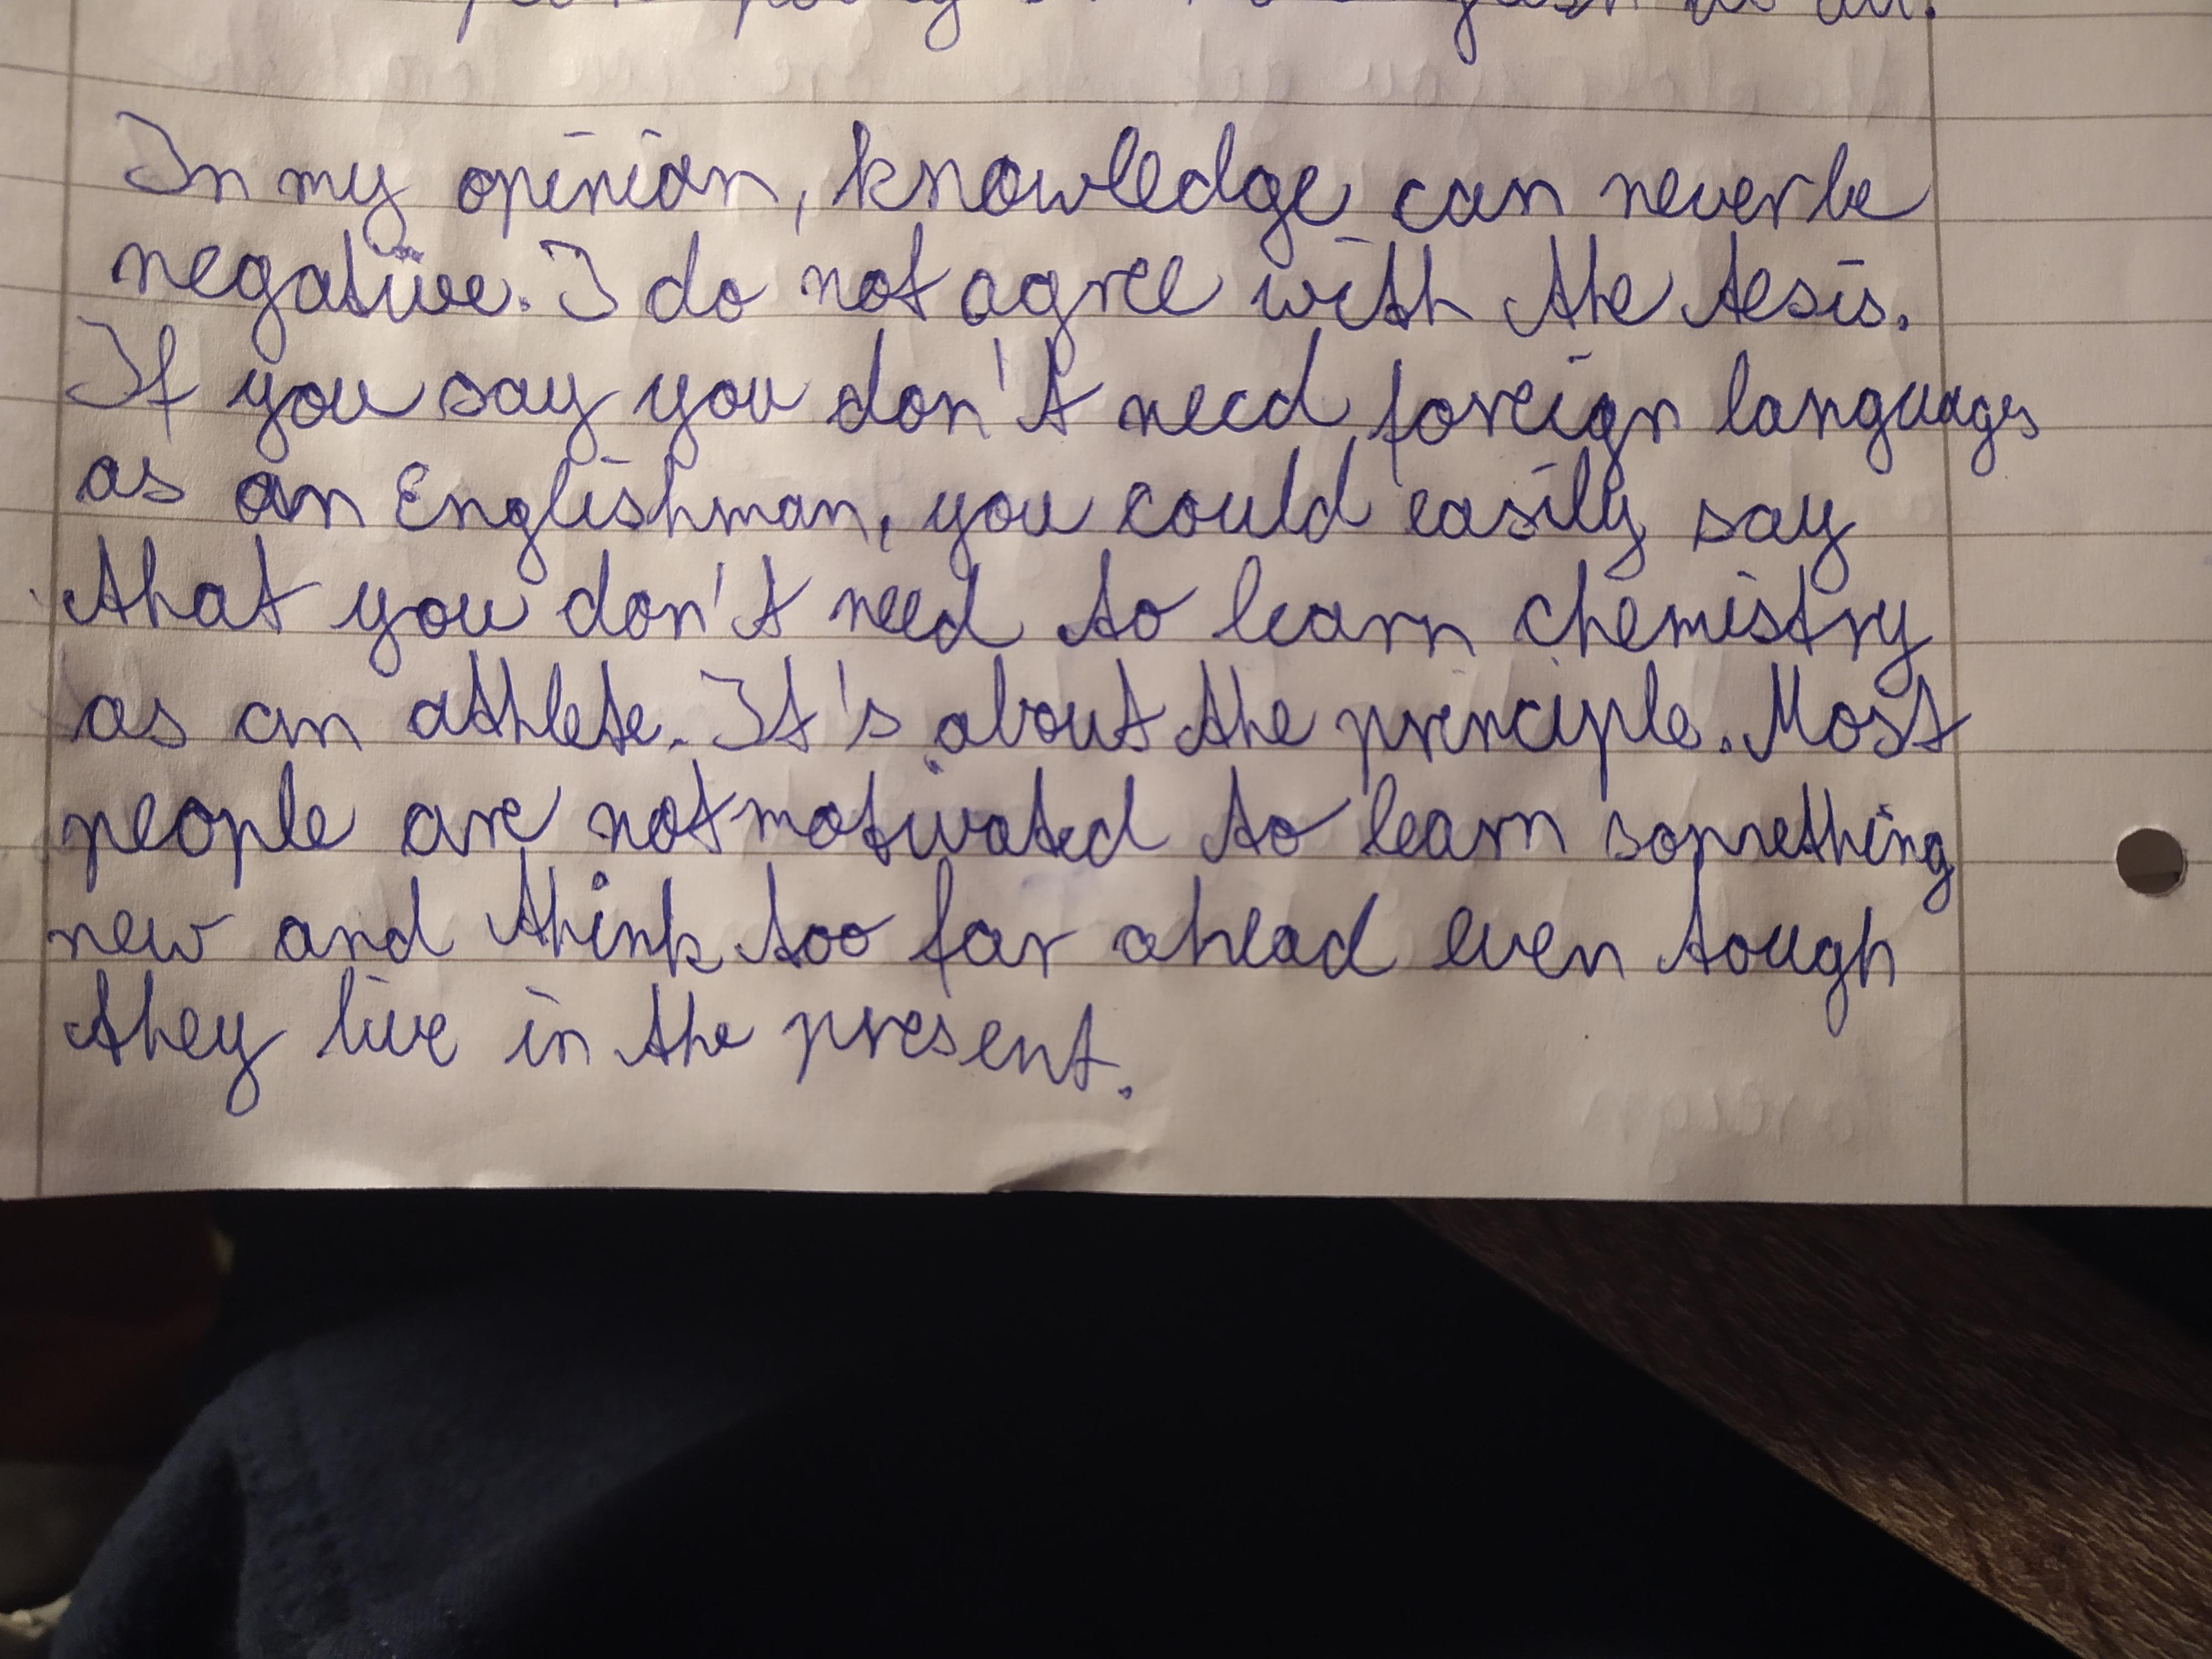 In my opinion, knowledge can never be
negative. I do not agree with the tesis.
If you say you don't need foreign languages
as an Englishman, you could easily say
that you don't need to learn chemistry
as an athlete. It's about the principle. Most
people are not motivated to learn something
new and think too far ahead even tough
they live in the present.